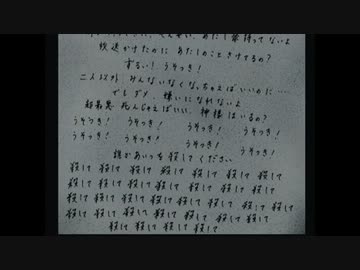 あたし気持ってないよ
放送かけたのに あたしのことさけてるの?
ずるい! うそつき!
二人以外、みんないなくなっちゃえばいいのに…
でもダメ、嫌いになれないよ
死んじゃえばいい、神様はいるの?
うそつき! うそつき! うそつき! うそつき!
うそつき! うそつき! うそつき! うそつき!
誰かあいつを殺してください
殺して 殺して 殺して 殺して 殺して 殺して 殺して
殺して 殺して 殺して 殺して 殺して 殺して 殺して
殺して 殺して 殺して 殺して 殺して 殺して 殺して
殺して 殺して 殺して 殺して 殺して 殺して 殺して
殺して 殺して 殺して 殺して